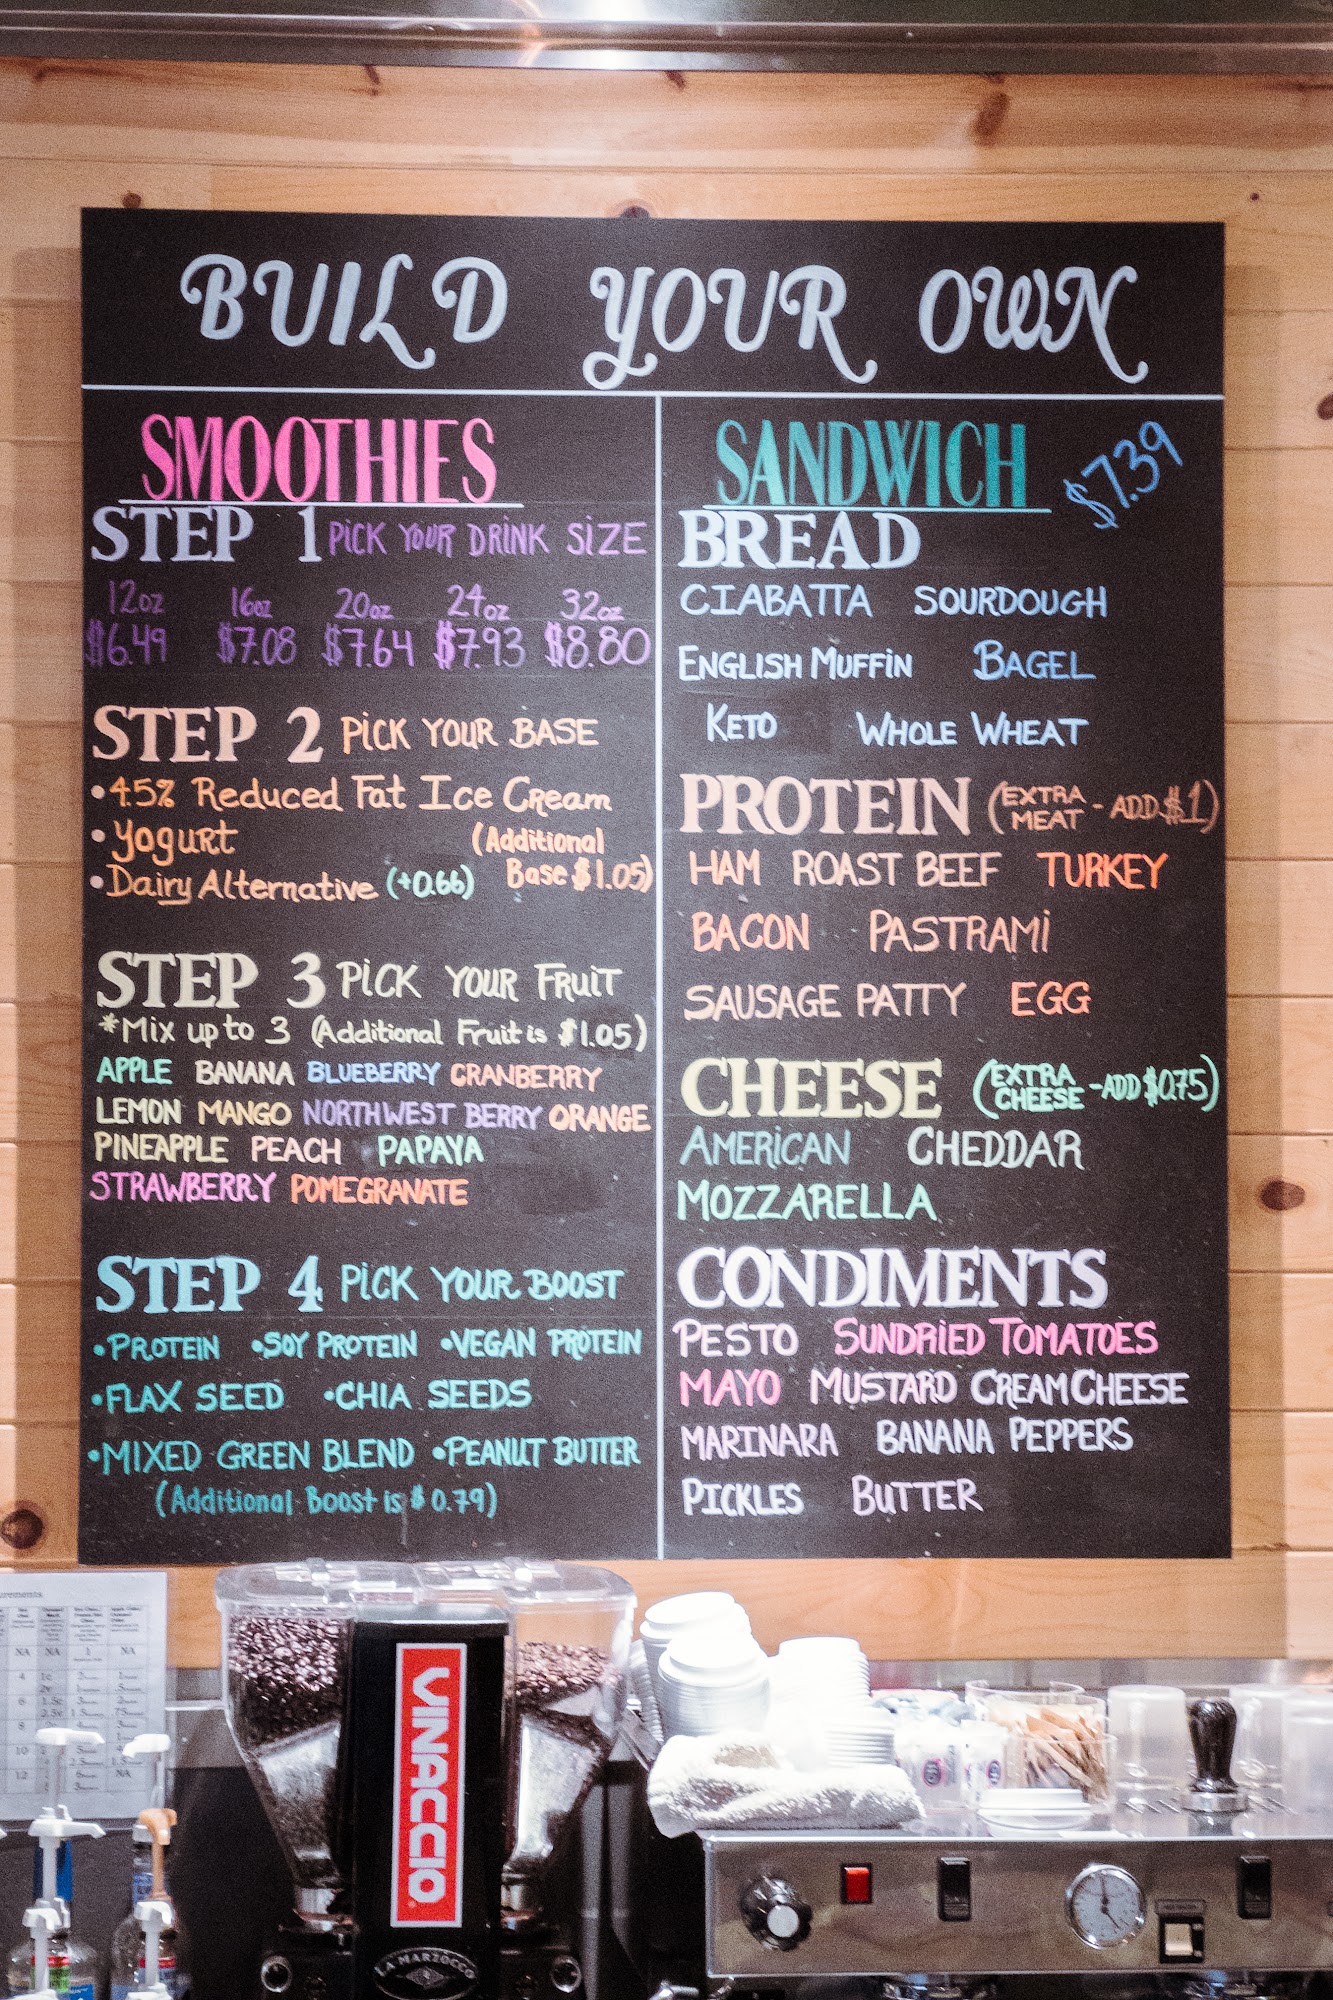 BUILD YOUR OWN
SMOOTHIES
STEP 1 PICK YOUR DRINK SIZE
12oz 16oz 20oz 24oz 32oz
$6.49 $7.08 $7.64 $7.93 $8.80
STEP 2 PICK YOUR BASE
•45% Reduced Fat Ice Cream
•Yogurt (Additional
•Dairy Alternative (+0.66) Base $1.05)
STEP 3 PICK YOUR FRUIT
*Mix up to 3 (Additional Fruit is $1.05)
APPLE BANANA BLUEBERRY CRANBERRY
LEMON MANGO NORTHWEST BERRY ORANGE
PINEAPPLE PEACH PAPAYA
STRAWBERRY POMEGRANATE
STEP 4 PICK YOUR BOOST
•PROTEIN •SOY PROTEIN •VEGAN PROTEIN
•FLAX SEED •CHIA SEEDS
•MIXED GREEN BLEND •PEANUT BUTTER
(Additional Boost is $0.79)
SANDWICH $7.39
BREAD
CIABATTA SOURDOUGH
ENGLISH MUFFIN BAGEL
KETO WHOLE WHEAT
PROTEIN (EXTRA MEAT - ADD $1)
HAM ROAST BEEF TURKEY
BACON PASTRAMI
SAUSAGE PATTY EGG
CHEESE (EXTRA CHEESE - ADD $0.75)
AMERICAN CHEDDAR
MOZZARELLA
CONDIMENTS
PESTO SUNDRIED TOMATOES
MAYO MUSTARD CREAM CHEESE
MARINARA BANANA PEPPERS
PICKLES BUTTER
VINACCIO
LA MARZOCCO